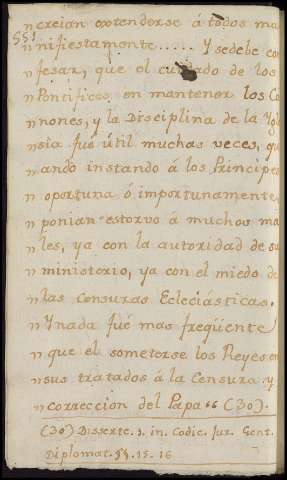 „ creian extenderse á todos ma
551
„ nifiestamente..... Y sedebe con
„ fesar, que el cuidado de los
„ Pontifices en mantener los Ca
„ nones, y la Disciplina de la Igle
„ sia fue útil muchas veces, qu
„ ando instando á los Principes
„ oportuna ó importunamente,
„ ponian estorvo á muchos ma
„ les, ya con la autoridad de su
„ ministerio, ya con el miedo de
„ las censuras Ecleciásticas.
„ Y nada fué mas freqüente
„ que el someterse los Reyes en
„ sus tratados á la Censura y
„ correccion del Papa “ (30).
(30) Disserte. 1. in. Codic. Jur. Gent.
Diplomat. §§. 15. 16